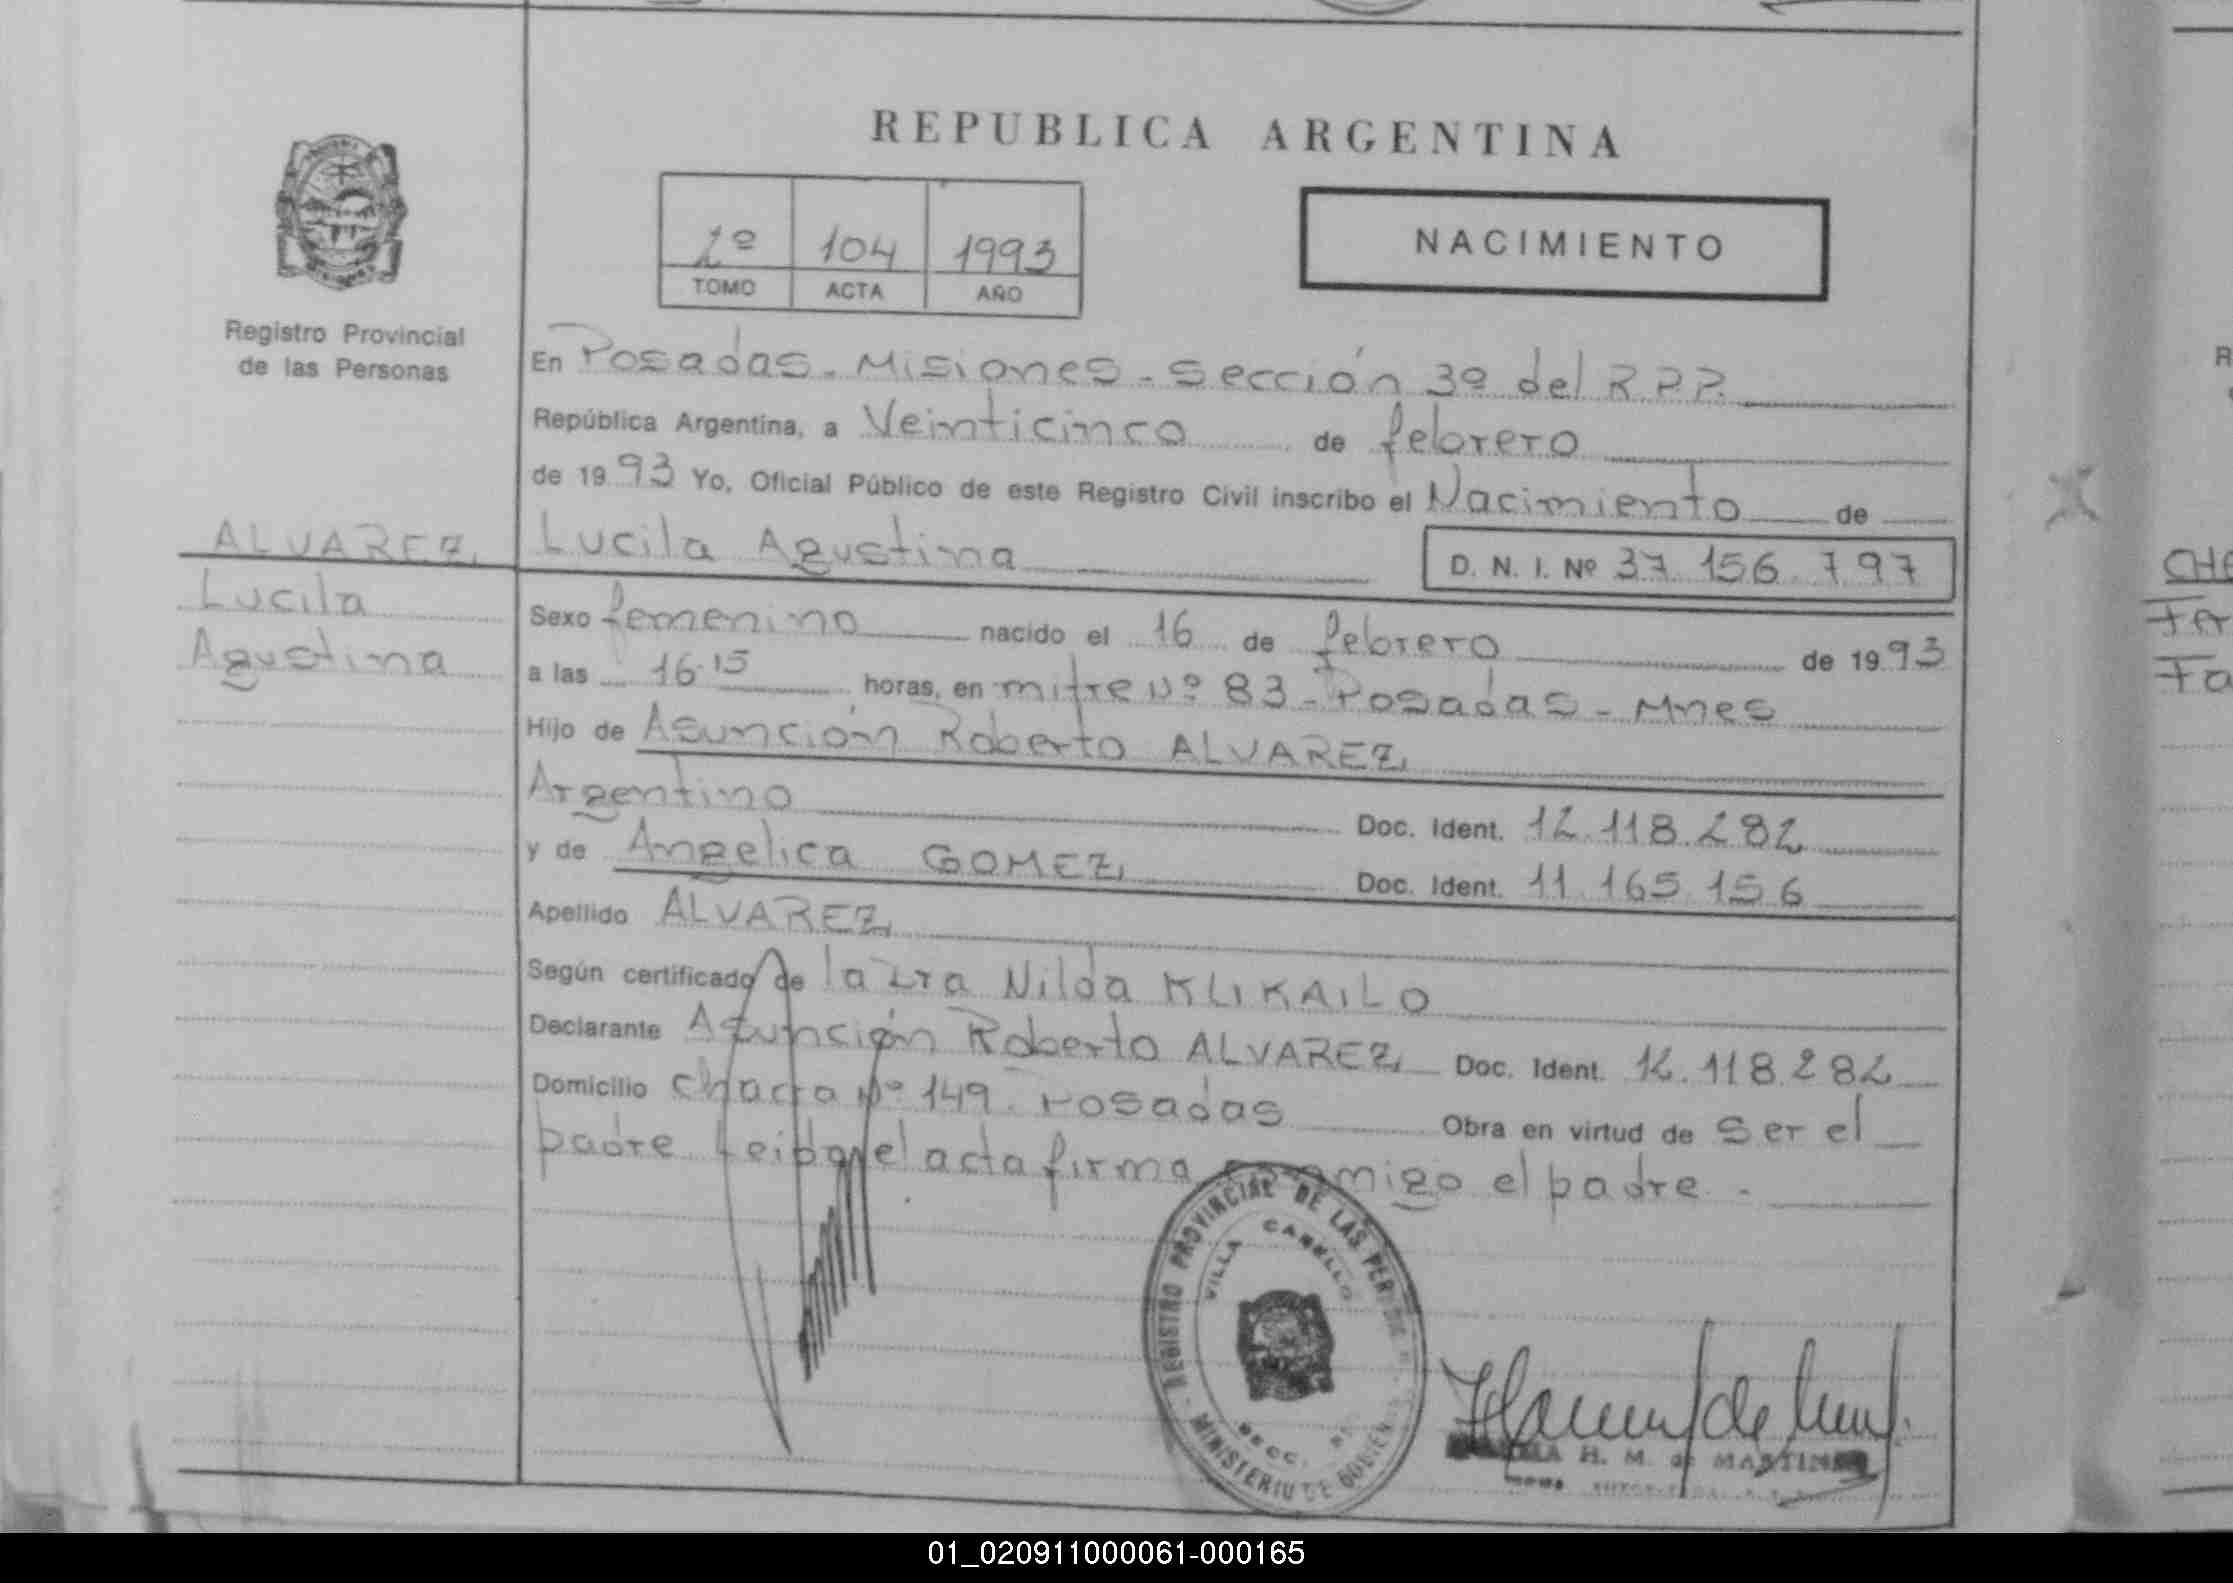 REPUBLICA ARGENTINA
1º 104 1993
TOMO ACTA AÑO
NACIMIENTO
Registro Provincial
de las Personas
En Posadas - Misiones - Sección 3º del R.P.P.
República Argentina, a Veinticinco de febrero
de 1993 Yo, Oficial Público de este Registro Civil inscribo el Nacimiento de
Lucila Agustina D. N. I. Nº 37.156.797
ALVAREZ,
Lucila
Agustina
Sexo femenino nacido el 16 de febrero de 1993
a las 16.15 horas, en mitre Nº 83 - Posadas - Mnes
Hijo de Asunción Roberto ALVAREZ,
Argentino Doc. Ident. 12.118.282
y de Angelica GOMEZ, Doc. Ident. 11.165.156
Apellido ALVAREZ,
Según certificado de la Dra Nilda KLIKAILO
Declarante Asunción Roberto ALVAREZ, Doc. Ident. 12.118.282
Domicilio Chacra Nº 149. Posadas Obra en virtud de ser el
padre Leida el acta firma conmigo el padre.
REGISTRO PROVINCIAL DE LAS
VILLA CABELLO
SECC.
MINISTERIO DE
H. M. de MARTINEZ
CHA
01_020911000061-000165